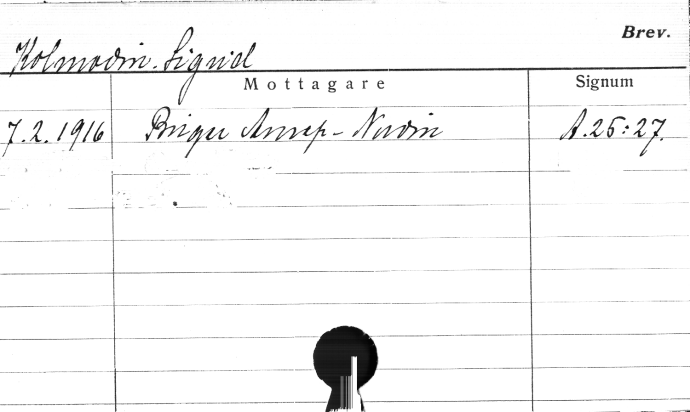 Brev.
Kolmodin. Sigrid
Mottagare Signum
7.2.1916 Birger Anrep-Nordin A.25:27.